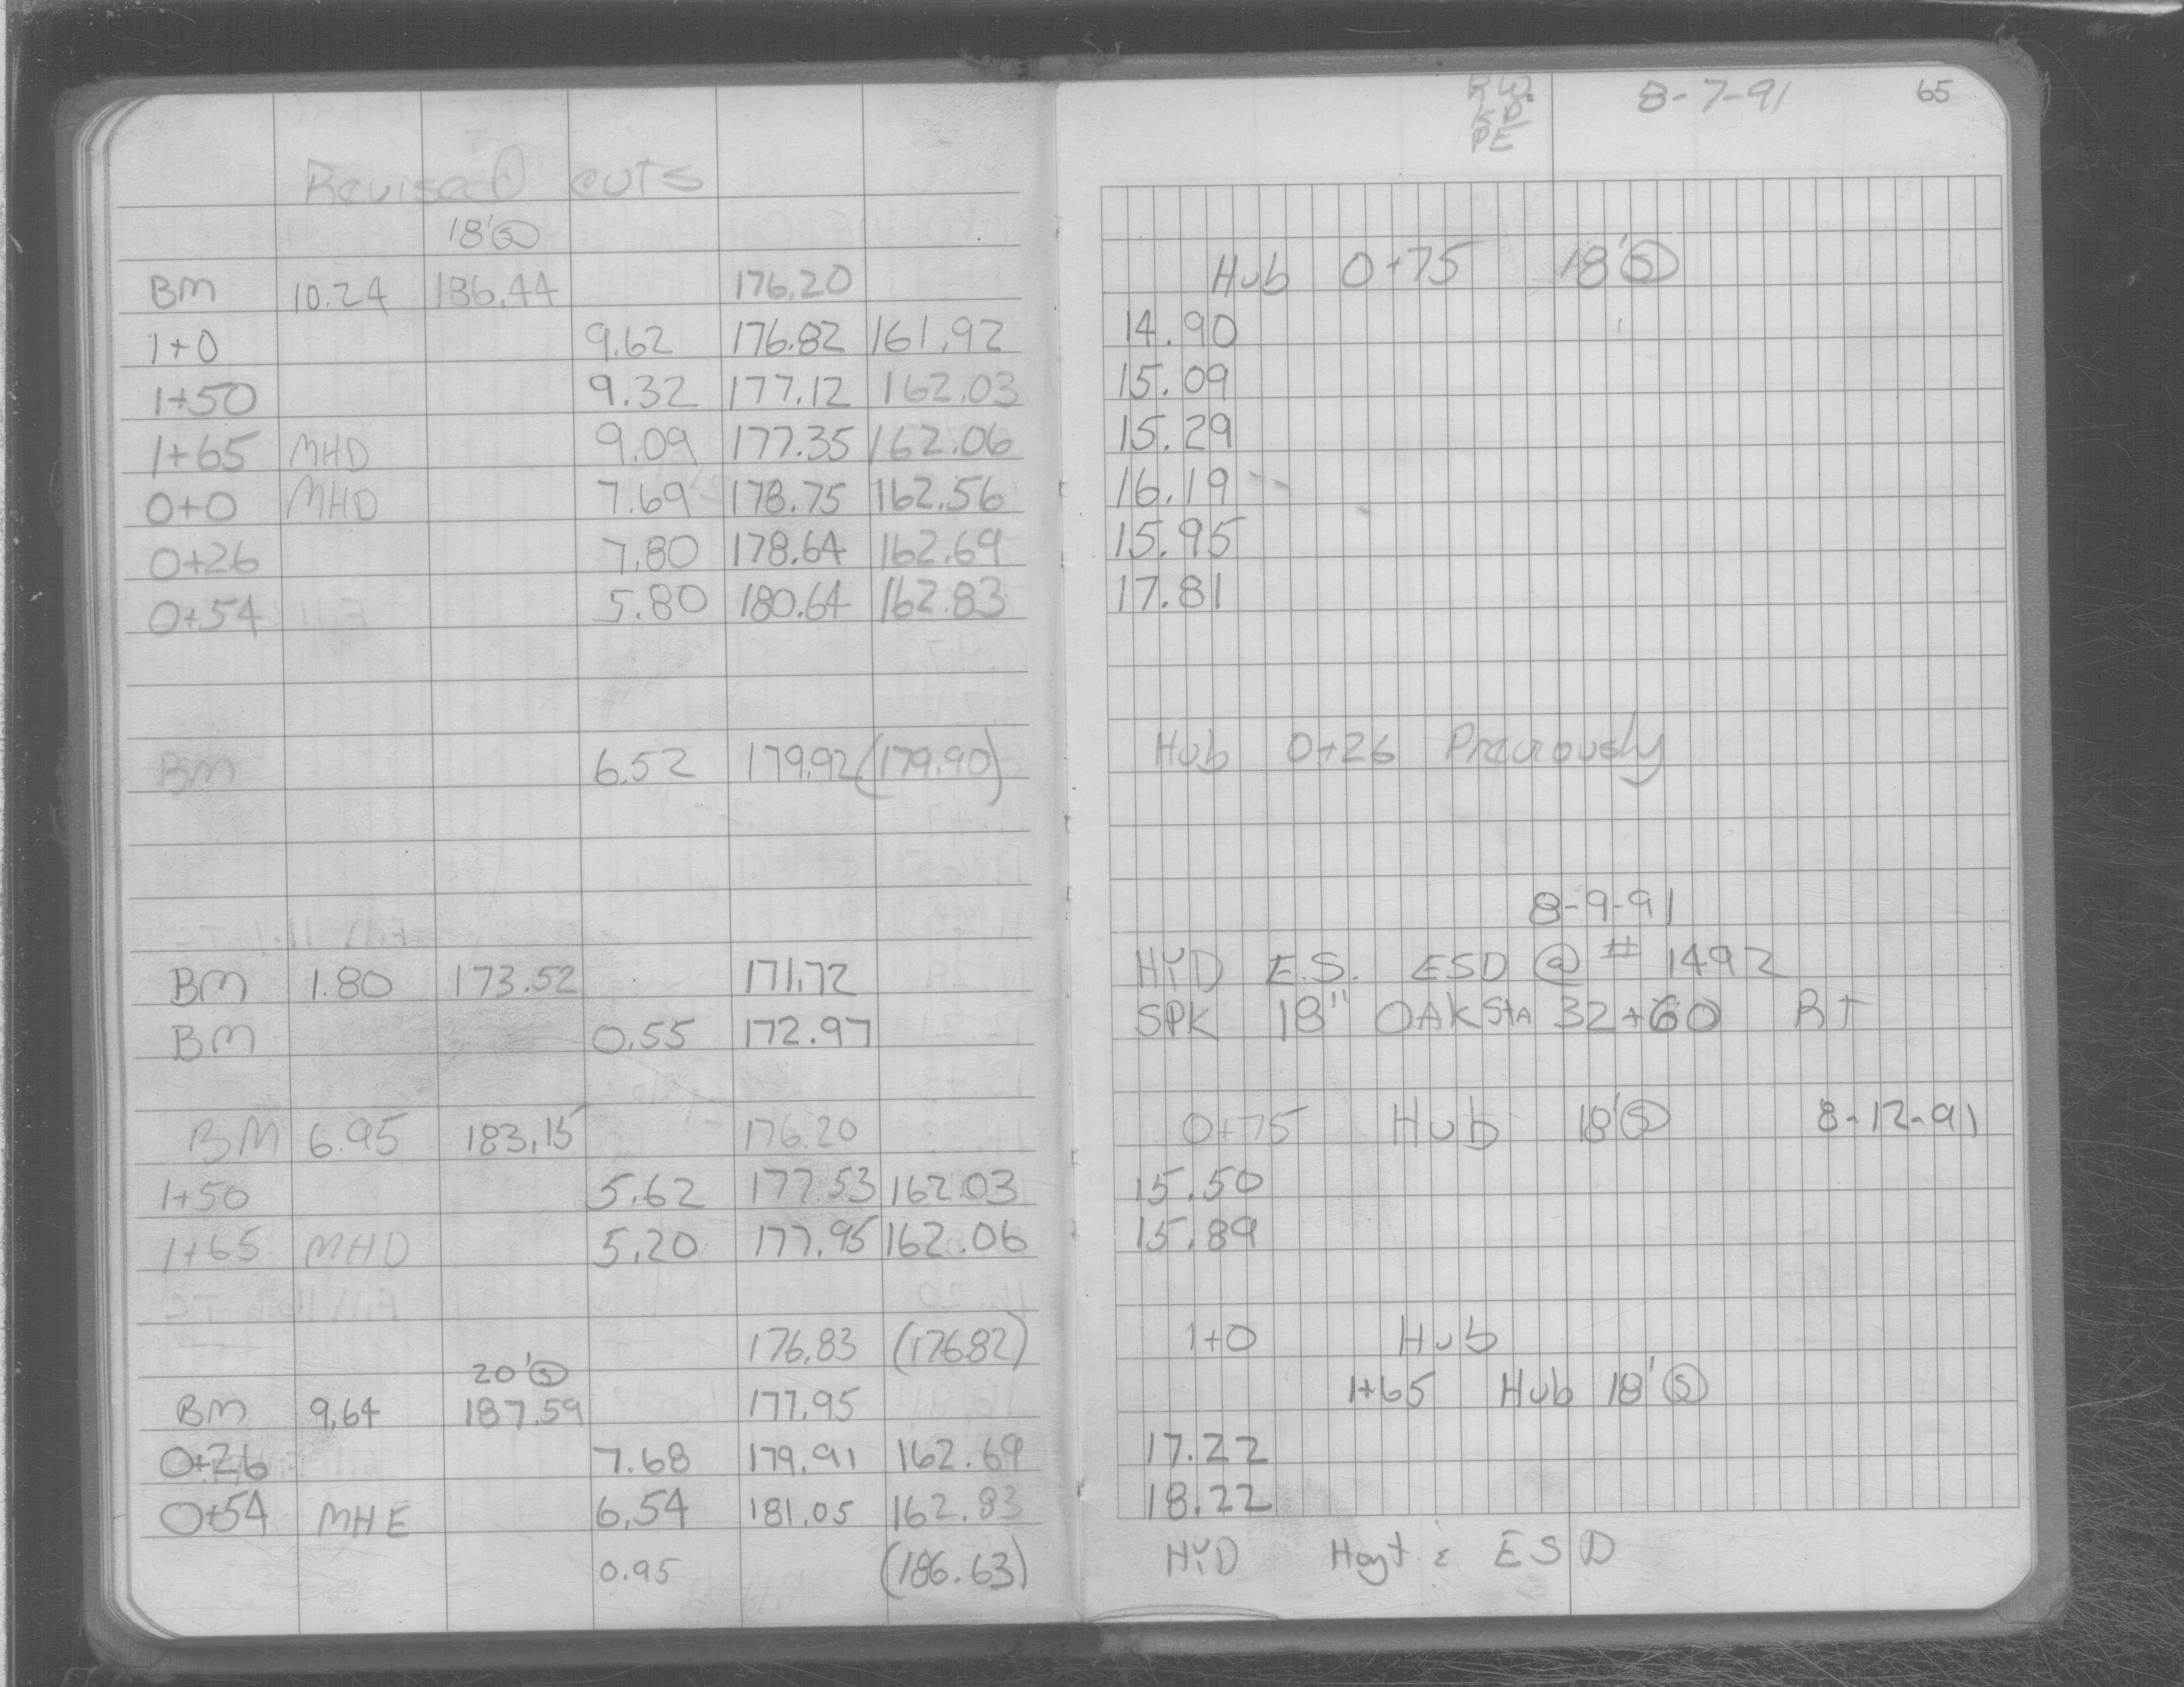 Revised cuts
18' Ⓢ
BM 10.24 186.44 176.20
1+0 9.62 176.82 161.92
1+50 9.32 177.12 162.03
1+65 MHD 9.09 177.35 162.06
0+0 MHD 7.69 178.75 162.56
0+26 7.80 178.64 162.69
0+54 5.80 180.64 162.83
BM 6.52 179.92 (179.90)
BM 1.80 173.52 171.72
BM 0.55 172.97
BM 6.95 183.15 176.20
1+50 5.62 177.53 162.03
1+65 MHD 5.20 177.95 162.06
176.83 (176.82)
20' Ⓢ
BM 9.64 187.59 177.95
0+26 7.68 179.91 162.69
0+54 MHE 6.54 181.05 162.83
0.95 (186.63)
RW. 8-7-91 65
PE
Hub 0+75 18' Ⓢ
14.90
15.09
15.29
16.19
15.95
17.81
Hub 0+26 Previously
8-9-91
HYD E.S. ESD @ # 1492
SPK 18" OAK Sta 32+60 RT
0+75 Hub 18' Ⓢ 8-12-91
15.50
15.89
1+0 Hub
1+65 Hub 18' Ⓢ
17.22
18.22
HYD Hoyt & ESD